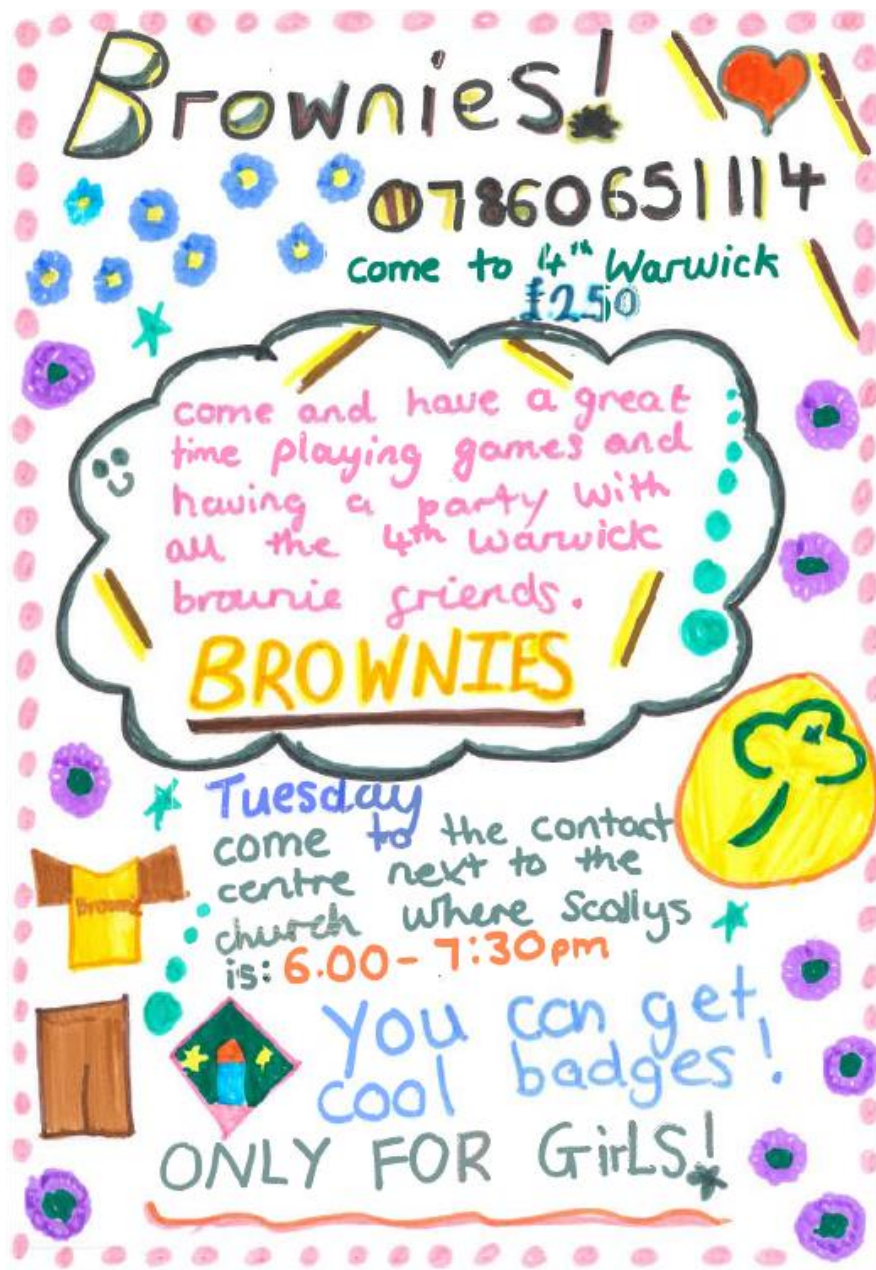 Brownies!
07860651114
come to 4th Warwick
£2.50
come and have a great
time playing games and
having a party with
all the 4th Warwick
brownie friends.
BROWNIES
Tuesday
come to the contact
centre next to the
church where Scallys
is: 6.00-7:30pm
You can get
cool badges!
ONLY FOR GirLS!